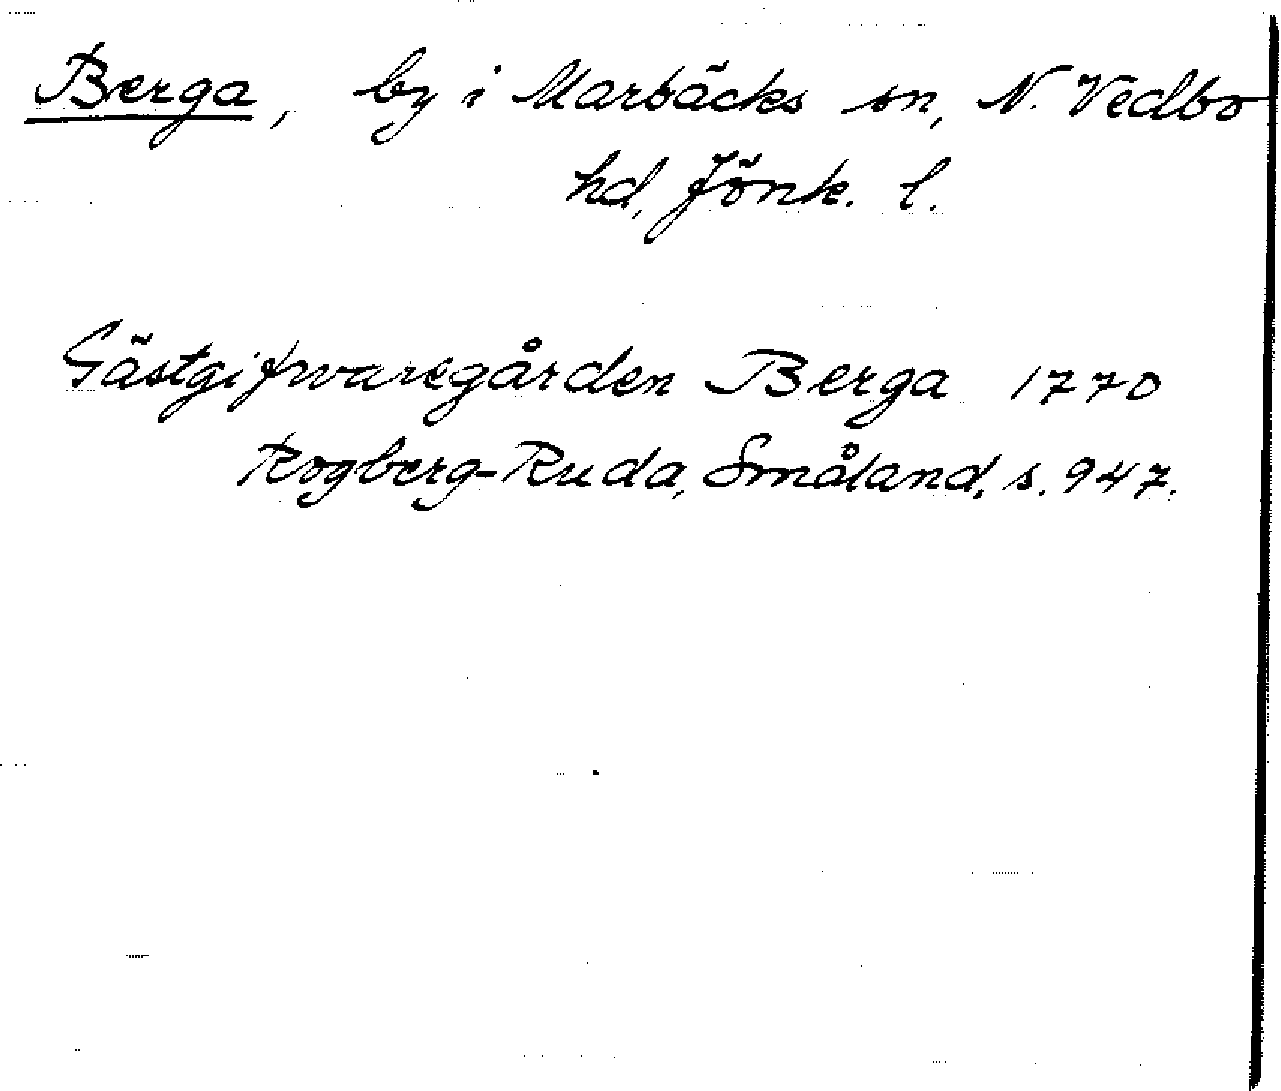 Berga, by i Marbäcks sn, N. Vedbo
hd, Jönk. l.
Gästgifwaregården Berga 1770
Rogberg-Ruda, Småland, s. 947.